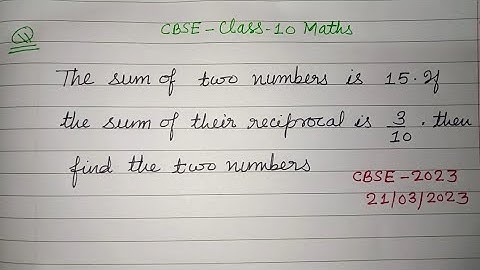 Q
CBSE - Class - 10 Maths
The sum of two numbers is 15. If
the sum of their reciprocal is 3/10 . then
find the two numbers
CBSE - 2023
21/03/2023